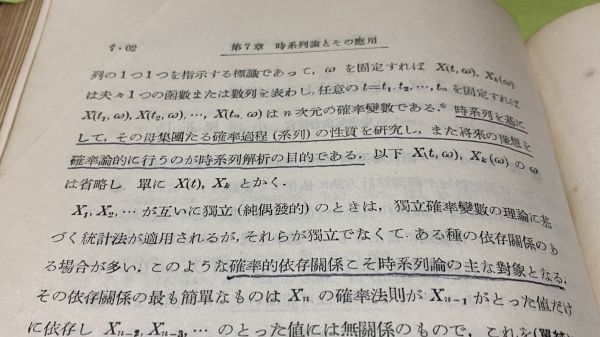 7・02 第7章 時系列論とその應用
列の1つ1つを指示する標識であって，ω を固定すれば X(t, ω), Xₖ(ω)
は夫々1つの函數または數列を表わし，任意の t=t₁, t₂, …, tₙ を固定すれば
X(t₁, ω), X(t₂, ω), …, X(tₙ, ω) は n 次元の確率變數である.* 時系列を基に
して，その母集團たる確率過程 (系列) の性質を研究し，また將來の豫想を
確率論的に行うのが時系列解析の目的である. 以下 X(t, ω), Xₖ(ω) の ω
は省略し 單に X(t), Xₖ とかく.
X₁, X₂, … が互いに獨立 (純偶發的) のときは，獨立確率變數の理論に基
づく統計法が適用されるが，それらが獨立でなくて，ある種の依存關係のあ
る場合が多い. このような確率的依存關係こそ時系列論の主な對象となる.
その依存關係の最も簡單なものは Xₙ の確率法則が Xₙ₋₁ がとった値だけ
に依存し Xₙ₋₂, Xₙ₋₃, … のとった値には無關係のもので，これを(單純